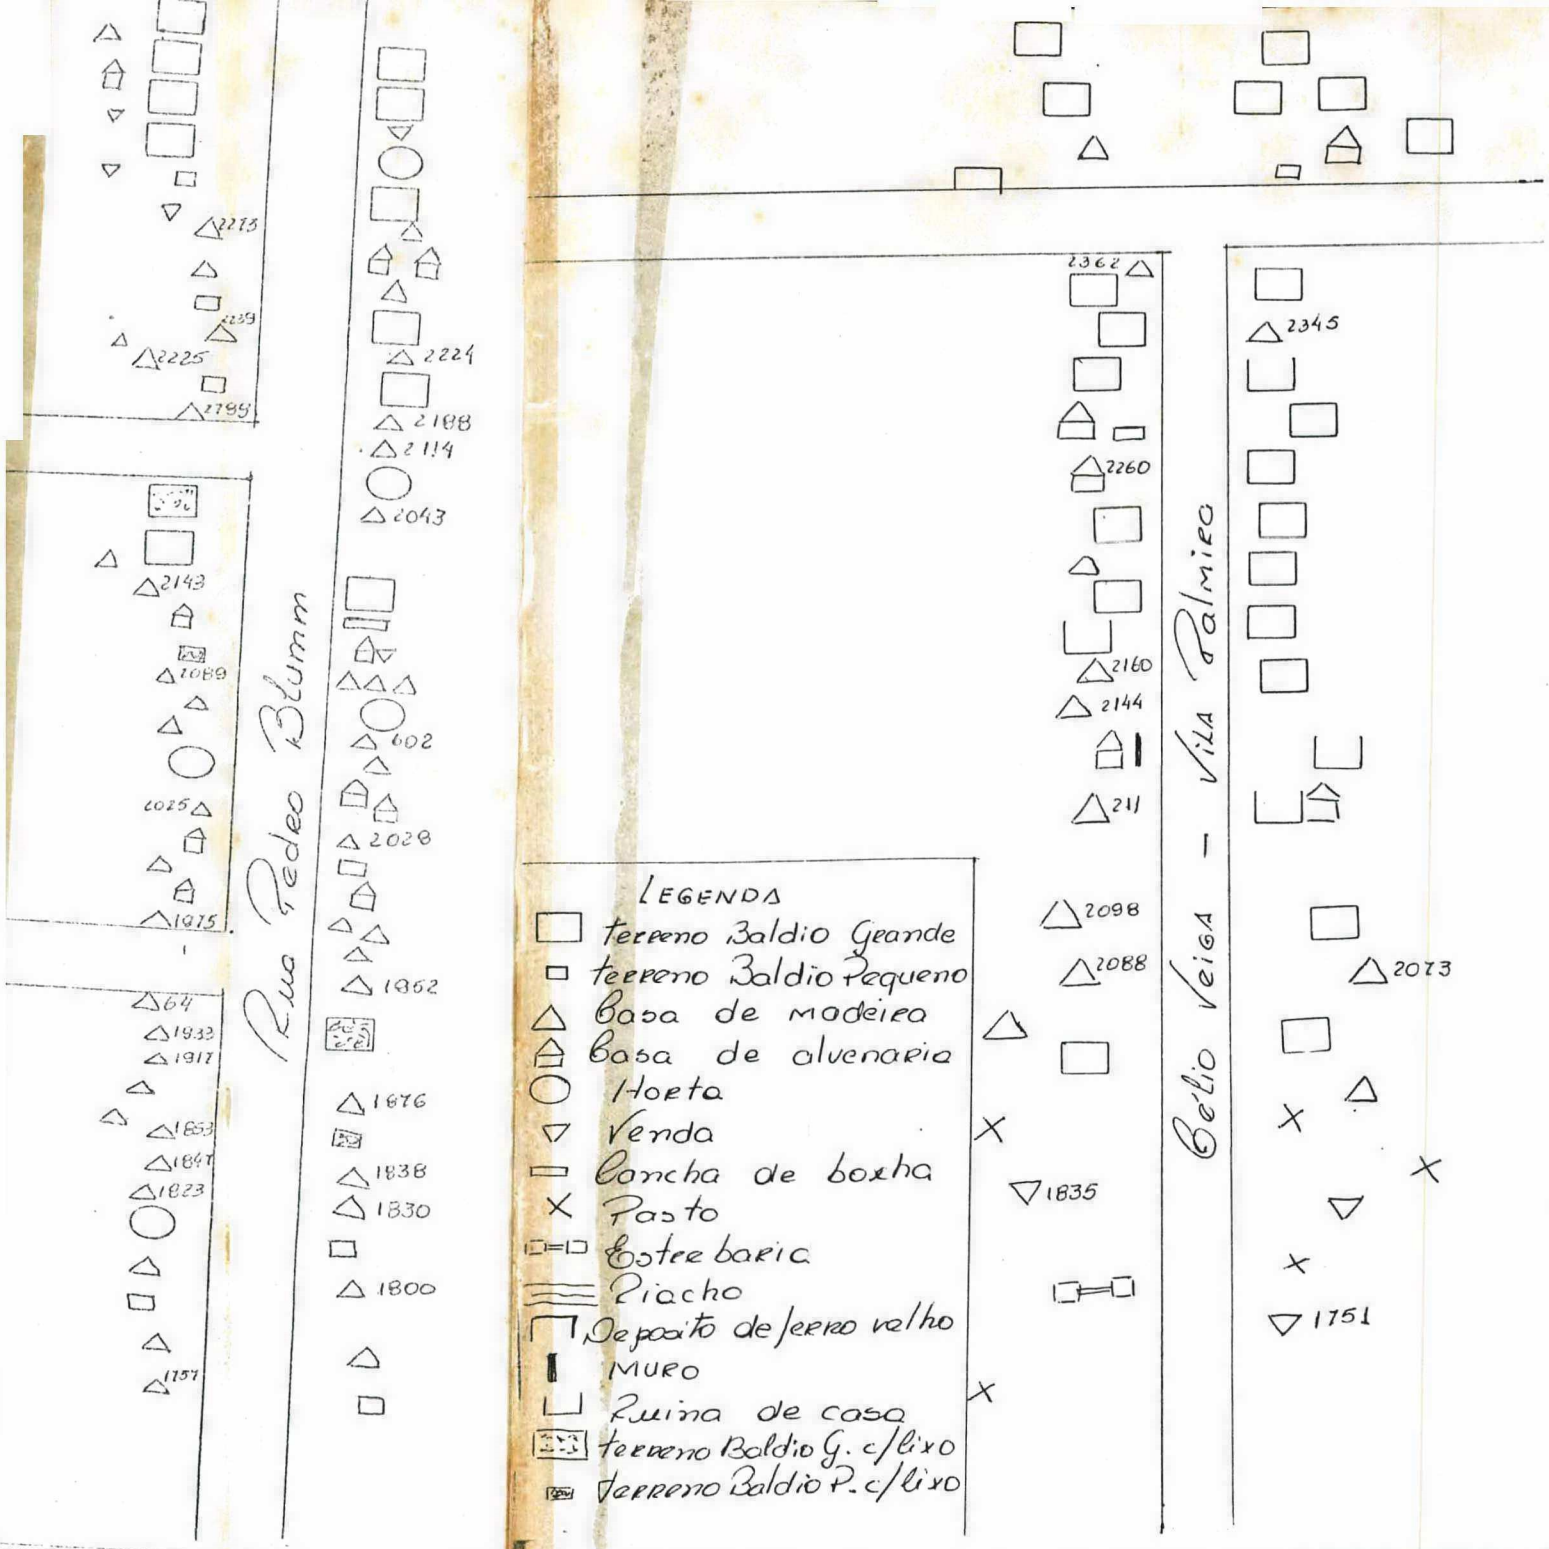 2273
2239
2225
2224
2188
2114
2043
2143
2089
602
2025
2028
1975
1952
64
1933
1917
1876
1853
1847
1838
1823
1830
1800
1757
Rua Pedro Blumm
2362
2345
2260
2160
2144
211
2098
2088
2073
1835
1751
Célio Veiga - Vila Palmira
LEGENDA
terreno Baldio Grande
terreno Baldio Pequeno
Casa de madeira
Casa de alvenaria
Horta
Venda
Cancha de boxha
Pasto
Estrebaria
Riacho
Deposito de ferro velho
MURO
Ruina de casa
terreno Baldio G. c/lixo
terreno Baldio P. c/lixo